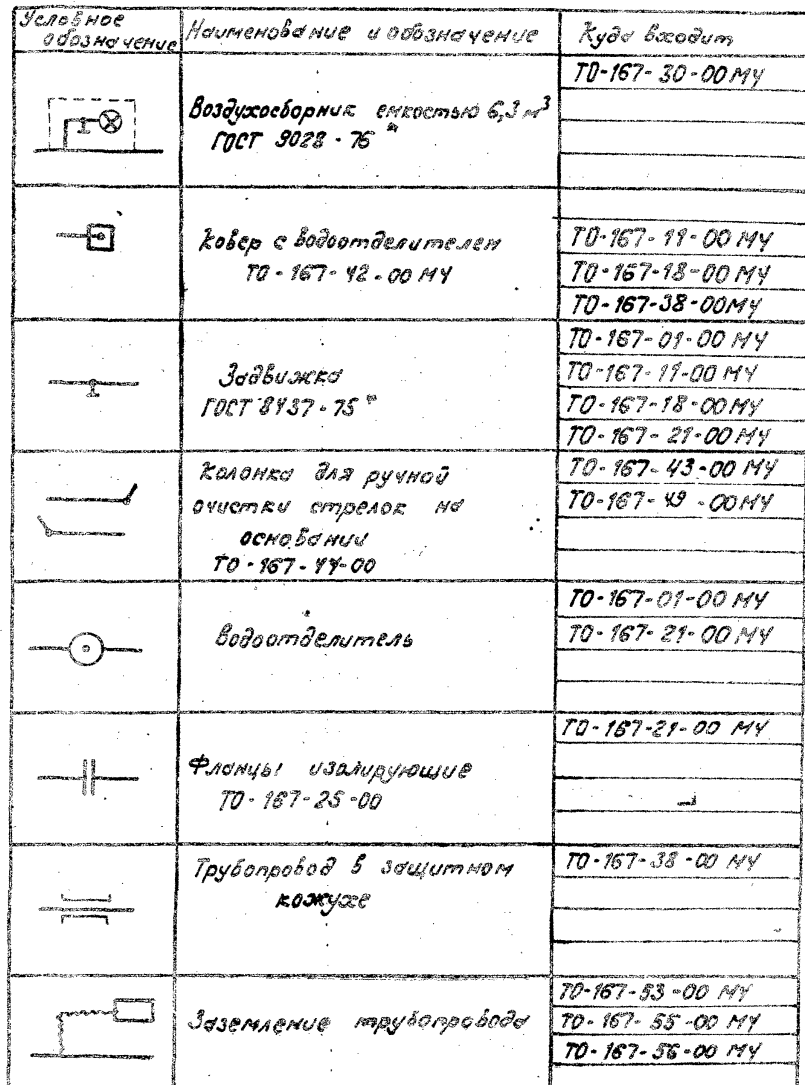 Условное обозначение
Наименование и обозначение
Куда входит
Воздухосборник емкостью 6,3 м³
ГОСТ 9028-76*
ТО-167-30-00 МЧ
Ковер с водоотделителем
ТО-167-42-00 МЧ
ТО-167-11-00 МЧ
ТО-167-18-00 МЧ
ТО-167-38-00 МЧ
Задвижка
ГОСТ 8437-75*
ТО-167-01-00 МЧ
ТО-167-11-00 МЧ
ТО-167-18-00 МЧ
ТО-167-21-00 МЧ
Колонка для ручной
очистки стрелок на
основании
ТО-167-44-00
ТО-167-43-00 МЧ
ТО-167-49-00 МЧ
Водоотделитель
ТО-167-01-00 МЧ
ТО-167-21-00 МЧ
Фланцы изолирующие
ТО-167-25-00
ТО-167-21-00 МЧ
Трубопровод в защитном
кожухе
ТО-167-38-00 МЧ
Заземление трубопровода
ТО-167-53-00 МЧ
ТО-167-55-00 МЧ
ТО-167-56-00 МЧ